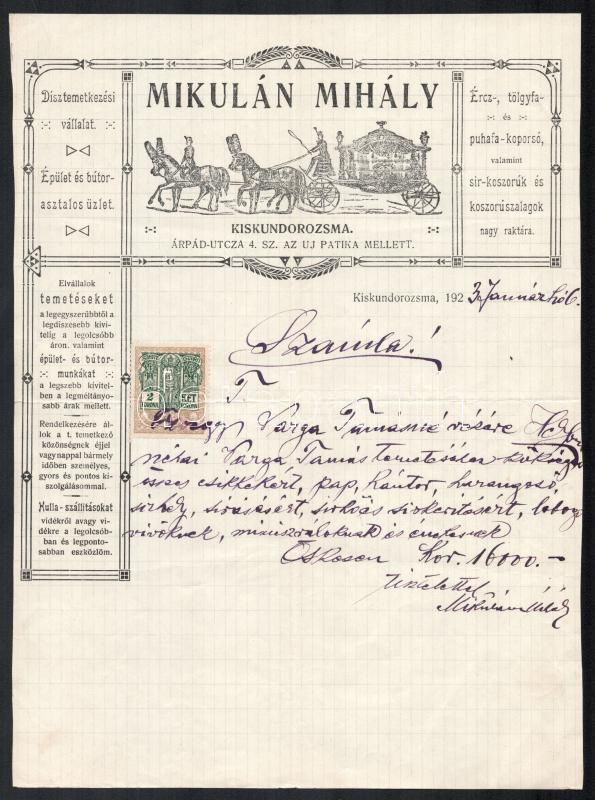 Dísztemetkezési
vállalat.
Épület és bútor-
asztalos üzlet.
MIKULÁN MIHÁLY
KISKUNDOROZSMA.
ÁRPÁD-UTCZA 4. SZ. AZ UJ PATIKA MELLETT.
Ércz-, tölgyfa-
és
puhafa-koporsó,
valamint
sir-koszorúk és
koszorúszalagok
nagy raktára.
Elvállalok
temetéseket
a legegyszerűbbtől a
legdíszesebb kivi-
telig a legolcsóbb
áron. valamint
épület- és bútor-
munkákat
a legszebb kivitel-
ben a legméltányo-
sabb árak mellett.
Rendelkezésére ál-
lok a t. temetkező
közönségnek éjjel
vagy nappal bármely
időben személyes,
gyors és pontos ki-
szolgálásommal.
Hulla-szállitásokat
vidékről avagy vi-
dékre a legolcsób-
ban és legponto-
sabban eszközlöm.
Kiskundorozsma, 192 3. Január hó 6.
Számla!
T.
2 KORONA KÉT KORONA
Varga Tamásné részére
néhai Varga Tamás temetésében
összes cikkekért, pap, kántor, harangozó
sírásásért,
és éneknek
Összesen Kor. 16000.-
Tisztelettel
Mikulán Mihály